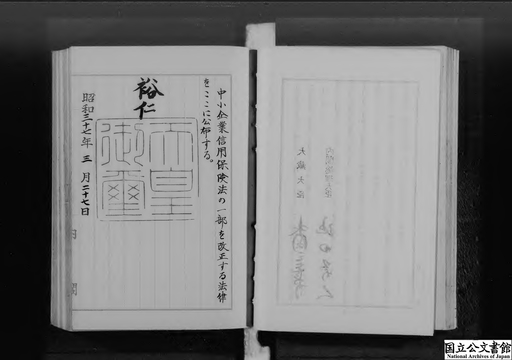 中小企業信用保険法の一部を改正する法律
をここに公布する。
裕仁
天皇
御璽
昭和三十七年三月二十七日
内閣
大蔵大臣
国立公文書館
National Archives of Japan